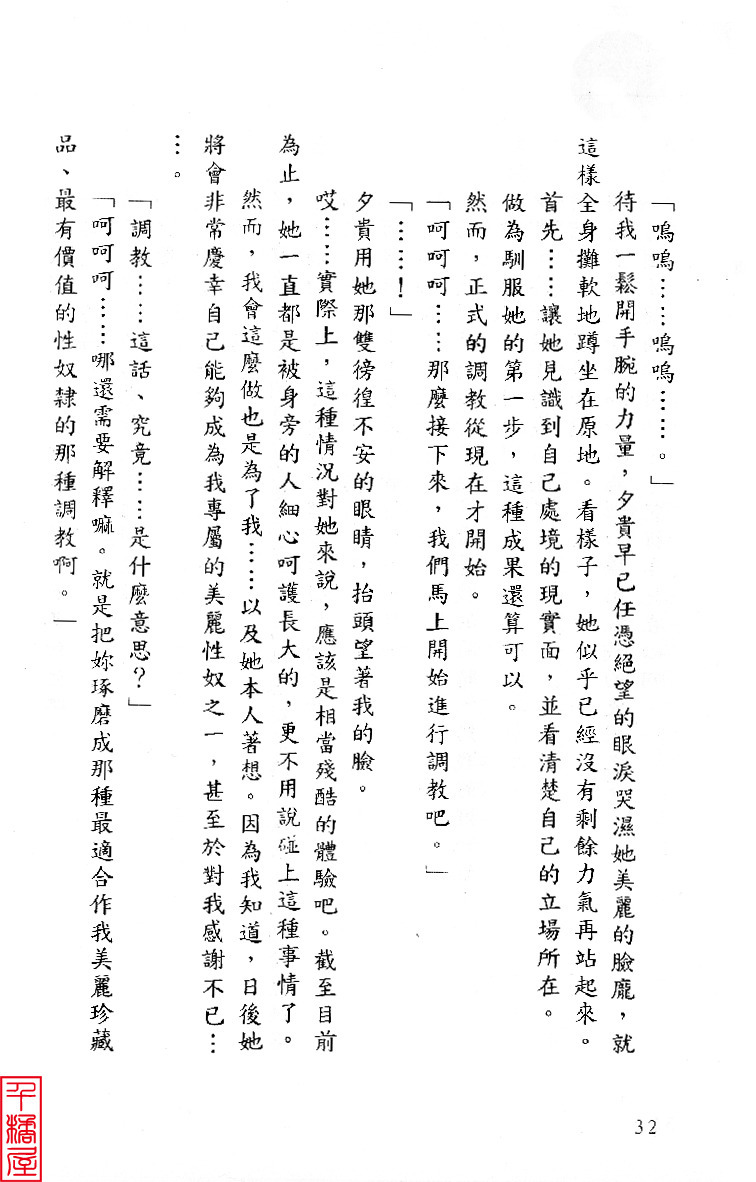 「嗚嗚……嗚嗚……。」
待我一鬆開手腕的力量，夕貴早已任憑絕望的眼淚哭濕她美麗的臉龐，就
這樣全身攤軟地蹲坐在原地。看樣子，她似乎已經沒有剩餘力氣再站起來。
首先……讓她見識到自己處境的現實面，並看清楚自己的立場所在。
做為馴服她的第一步，這種成果還算可以。
然而，正式的調教從現在才開始。
「呵呵呵……那麼接下來，我們馬上開始進行調教吧。」
「……！」
夕貴用她那雙徬徨不安的眼睛，抬頭望著我的臉。
哎……實際上，這種情況對她來說，應該是相當殘酷的體驗吧。截至目前
為止，她一直都是被身旁的人細心呵護長大的，更不用說碰上這種事情了。
然而，我會這麼做也是為了我……以及她本人著想。因為我知道，日後她
將會非常慶幸自己能夠成為我專屬的美麗性奴之一，甚至於對我感謝不已…
…。
「調教……這話、究竟……是什麼意思？」
「呵呵呵……哪還需要解釋嘛。就是把妳琢磨成那種最適合作我美麗珍藏
品、最有價值的性奴隸的那種調教啊。」
32
千橘屋